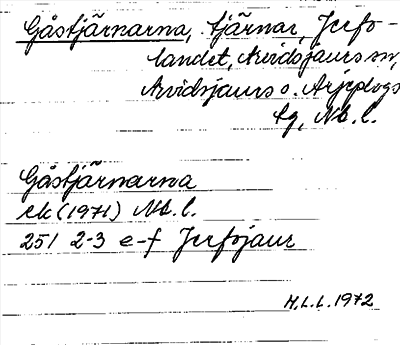 Gåstjärnarna, tjärnar, Jerfo-
landet, Arvidsjaurs sn,
Arvidsjaurs o. Arjeplogs
tg, Nb. l.
Gåstjärnarna
ek (1971) Nb. l.
25I 2-3 e-f Jerfojaur
H.L.L. 1972